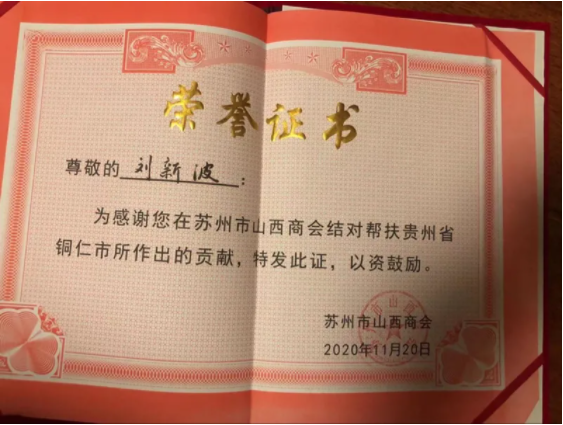 荣誉证书
尊敬的 刘新波 :
为感谢您在苏州市山西商会结对帮扶贵州省
铜仁市所作出的贡献,特发此证,以资鼓励。
苏州市山西商会
2020年11月20日